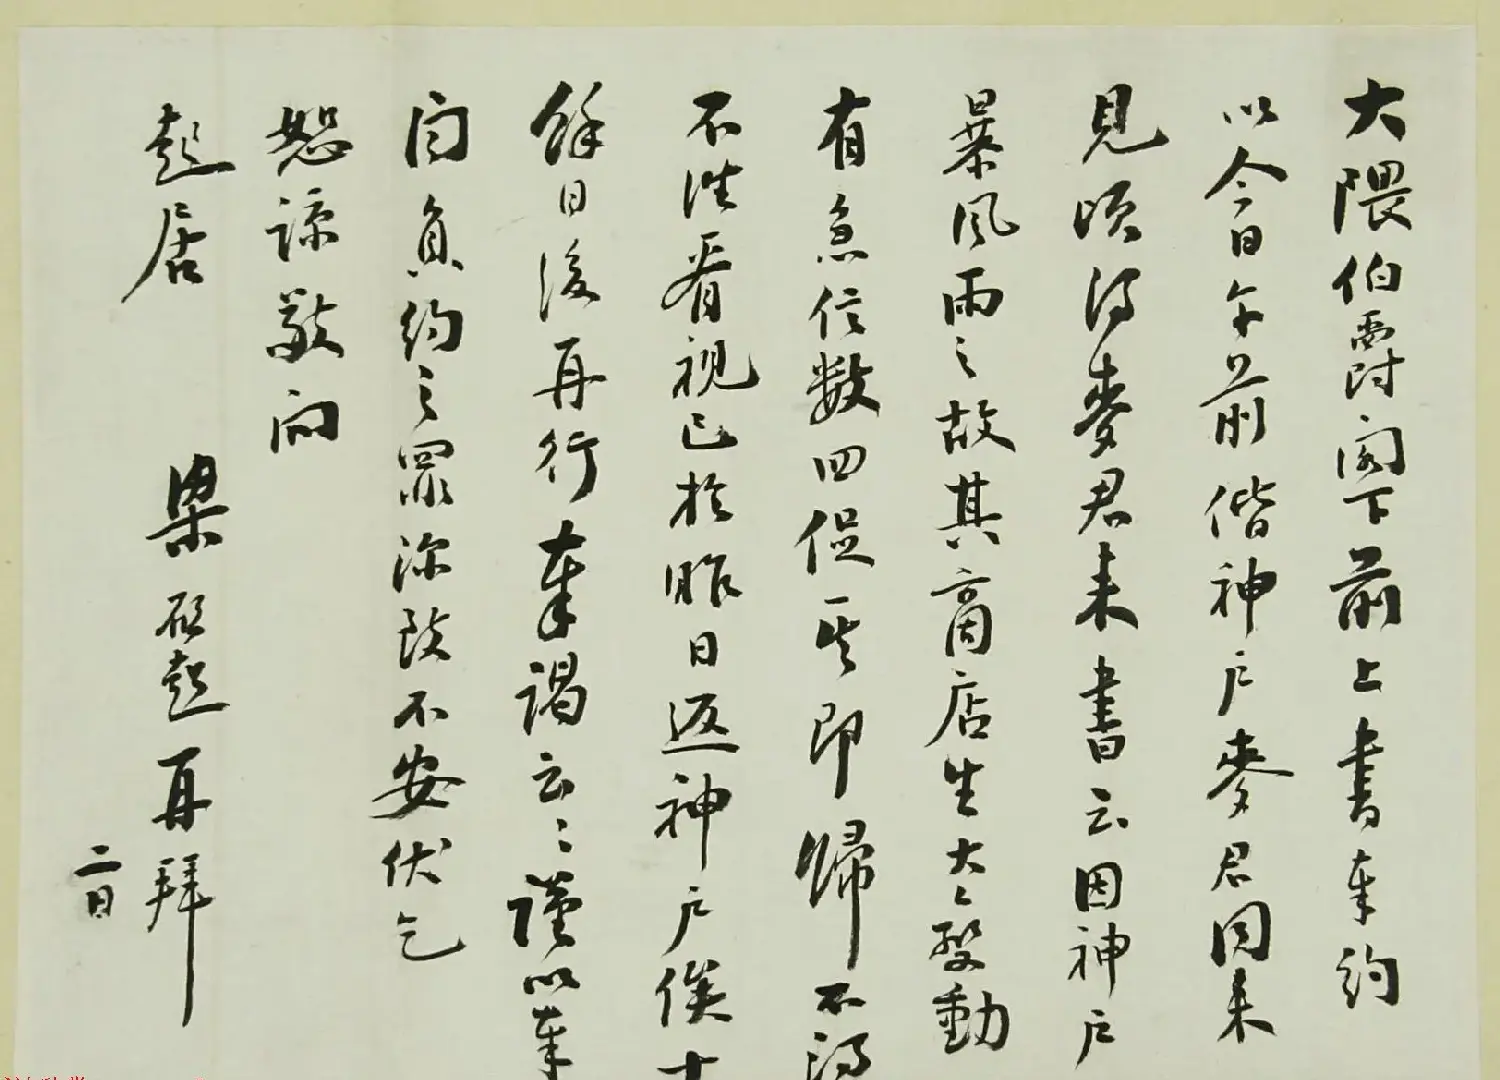 大隈伯爵閣下前上書奉約
以今日午前偕神戶麥君同来
見頃得麥君来書云因神戶
暴風雨之故其商店生大々變動
有急信数四促其即歸不得
不往看視已於昨日返神戶俟十
餘日後再行奉謁云々謹以奉
聞負約之罪深致不安伏乞
恕諒敬問
起居
梁啟超再拜
二日